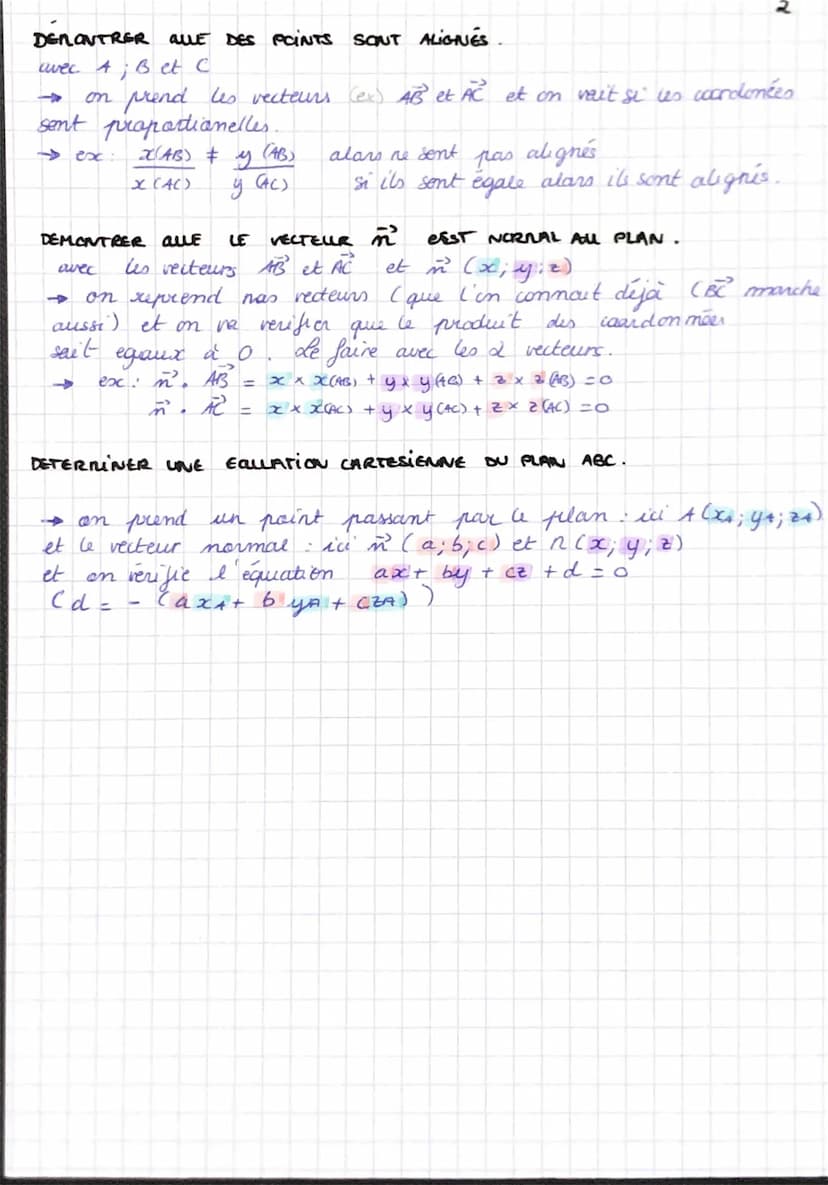 2
DÉMONTRER QUE DES POINTS SONT ALIGNÉS.
avec A ; B et C
→ on prend les vecteurs (ex) AB⃗ et AC⃗ et on voit si les coordonées
sont proportionelles.
→ ex : x(AB)/x(AC) ≠ y(AB)/y(AC) alors ne sont pas alignés
si ils sont égale alors ils sont alignés.
DEMONTRER QUE LE VECTEUR n⃗ EEST NORMAL AU PLAN.
avec les vecteurs AB⃗ et AC⃗ et n⃗ (x; y; z)
→ on reprend nos vecteurs (que l'on connait déjà (BC⃗ marche
aussi) et on va verifier que le produit des coordonnées
soit egaux à 0. Le faire avec les 2 vecteurs.
→ ex : n⃗ . AB⃗ = x × x(AB) + y × y(AB) + z × z(AB) = 0
n⃗ . AC⃗ = x × x(AC) + y × y(AC) + z × z(AC) = 0
DETERMINER UNE EQUATION CARTESIENNE DU PLAN ABC.
→ on prend un point passant par le plan : ici A(xA; yA; zA)
et le vecteur normal : ici n⃗ (a; b; c) et M(x; y; z)
et on vérifie l'équation ax + by + cz + d = 0
(d = - (axA + b yA + czA))